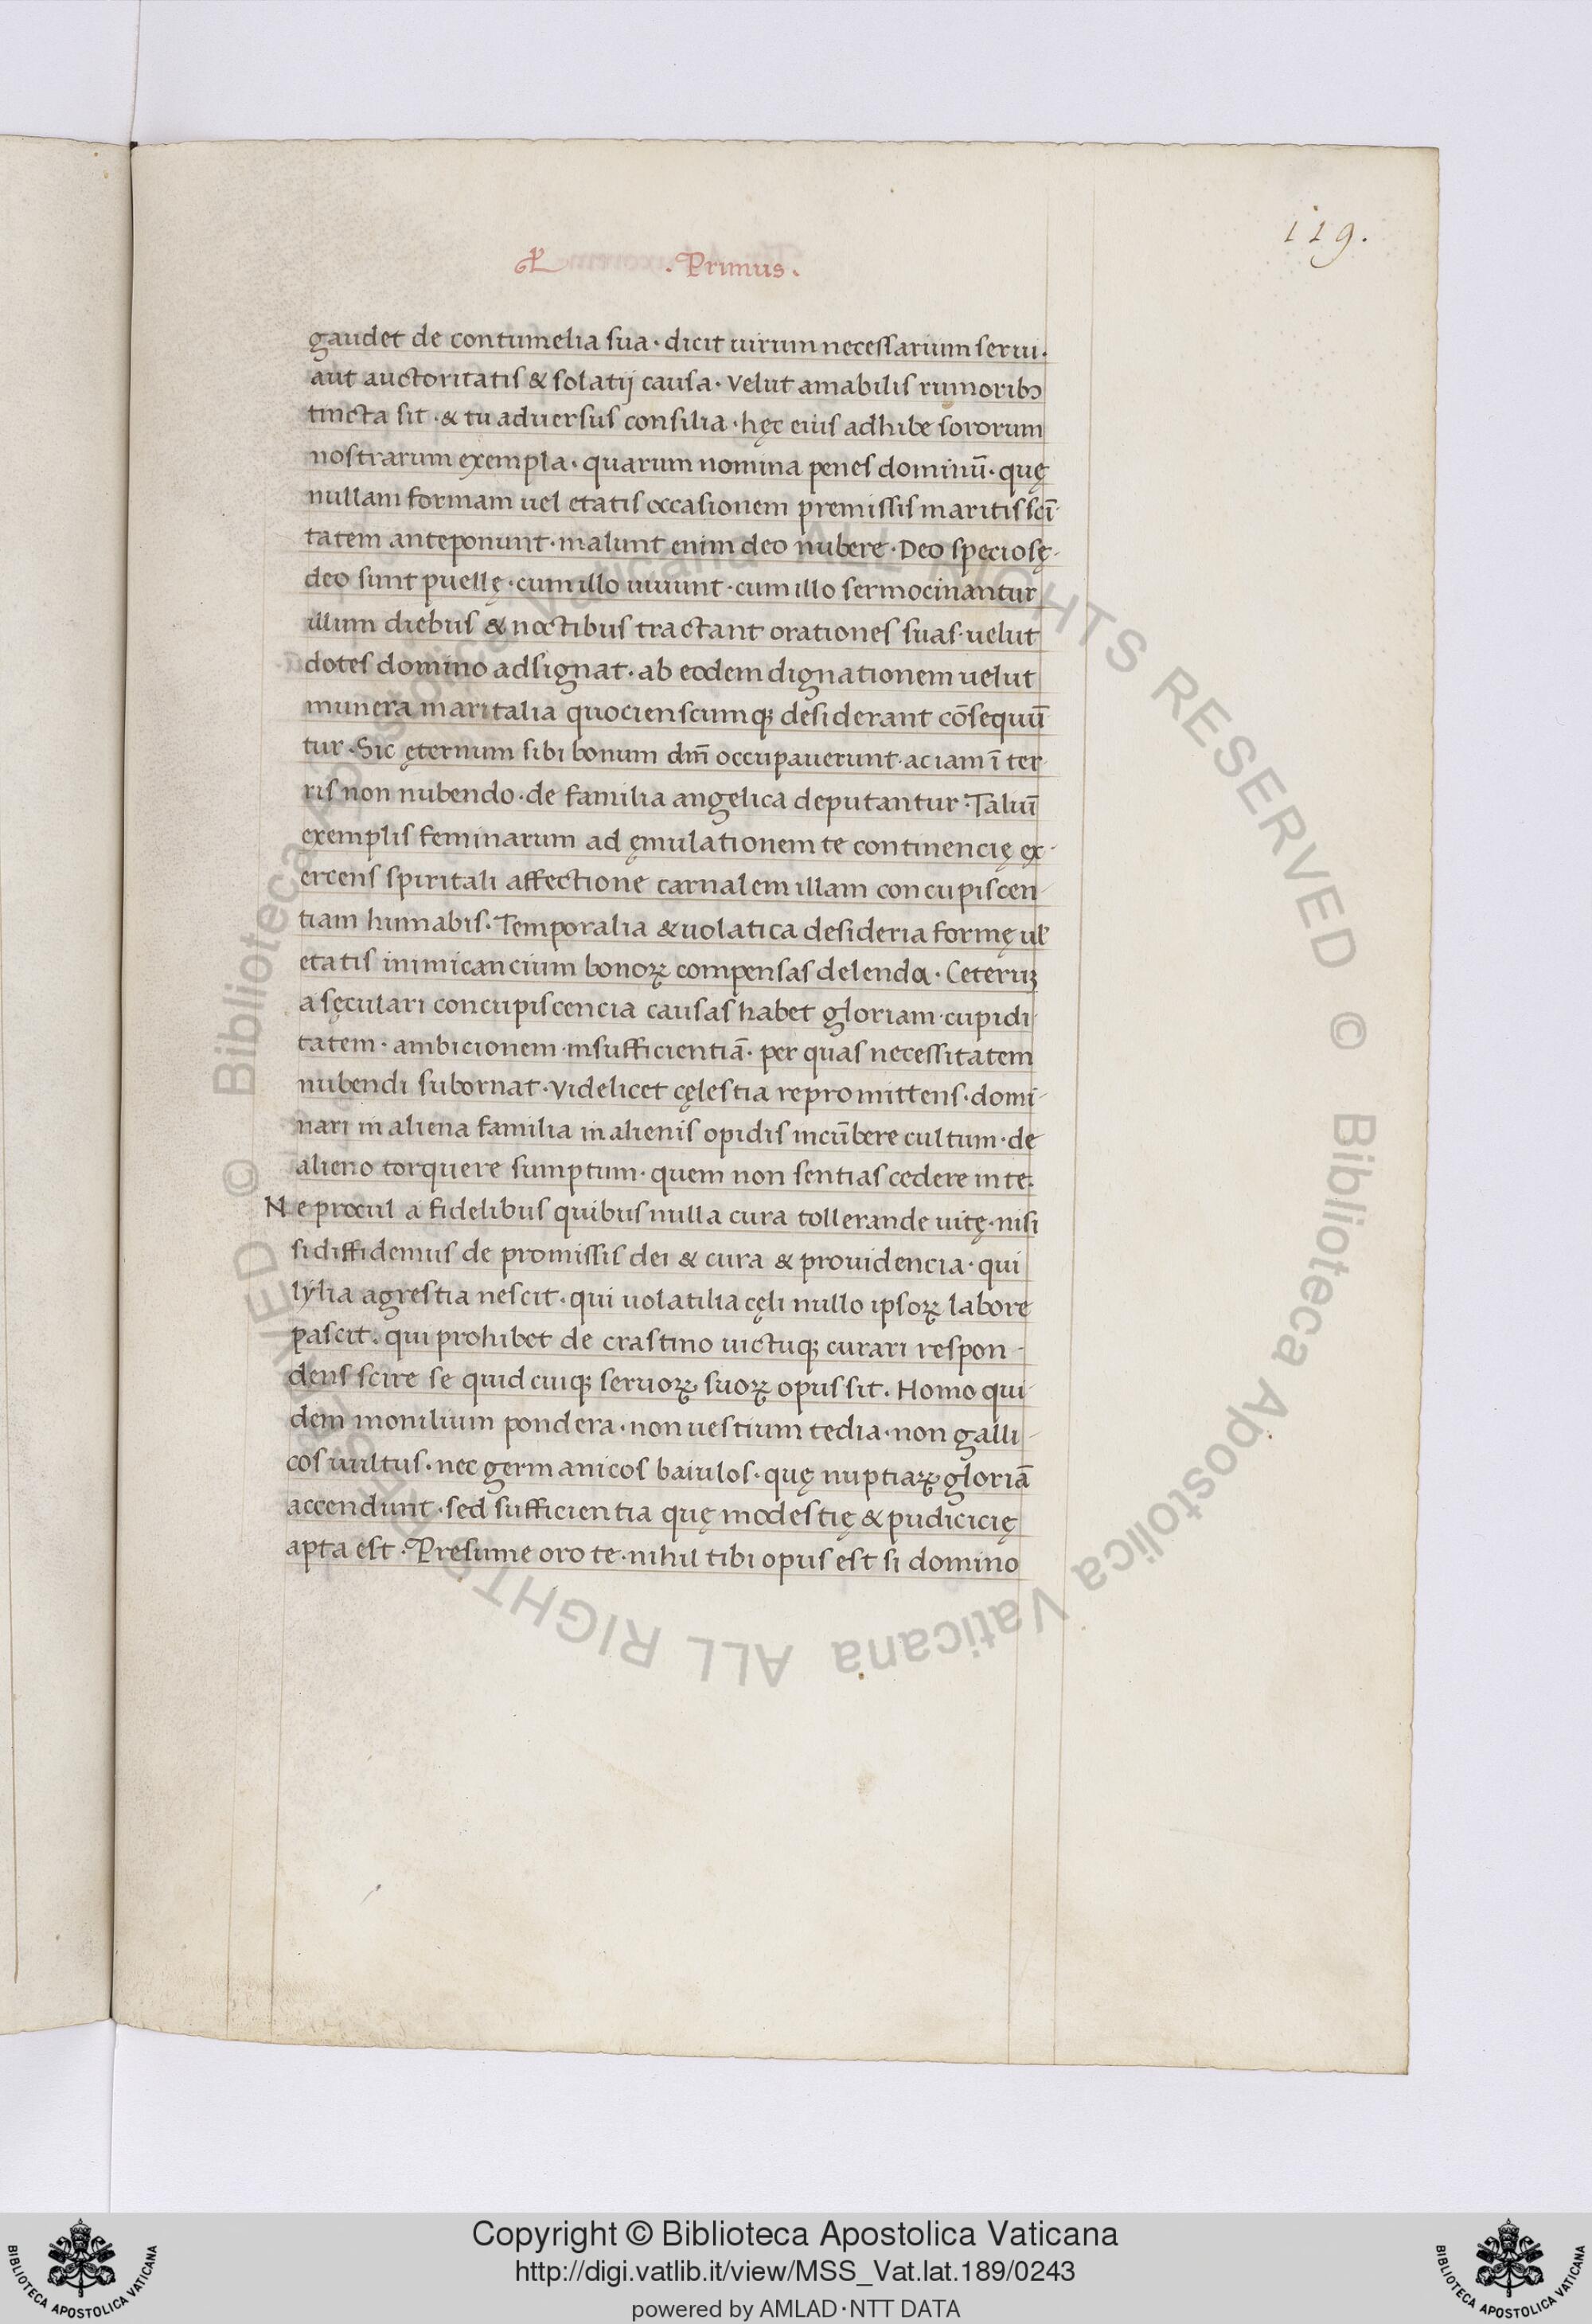 119.
. Primus .
gaudet de contumelia sua · dicit uirum necessarium serui ·
aut auctoritatis & solatij causa · Velut amabilis rumorib;
tincta sit · & tu aduersus consilia · hęc eius adhibe sororum
nostrarum exempla · quarum nomina penes dominū · quę
nullam formam uel etatis occasionem premissis maritis scī-
tatem anteponunt · malunt enim deo nubere · Deo speciosę ·
deo sunt puellę · cum illo uiuunt · cum illo sermocinantur
illum diebus & noctibus tractant orationes suas · uelut
dotes domino adsignat · ab eodem dignationem uelut
munera maritalia quocienscumq; desiderant cōsequū
tur · Sic ęternum sibi bonum dm̄ occupauerunt · ac iam ī ter
ris non nubendo · de familia angelica deputantur · Taliuī
exemplis feminarum ad ęmulationem te continencię ex-
ercens spiritali affectione carnalem illam concupiscen-
tiam humabis · Temporalia & uolatica desideria formę ul̄
etatis inimicancium bonoꝝ compensas delenda · Ceteruꝫ
a sęculari concupiscencia causas habet gloriam · cupidi-
tatem · ambicionem · insufficientiā · per quas necessitatem
nubendi subornat · Videlicet cęlestia repromittens · domi-
nari in aliena familia in alienis opidis incūbere cultum · de
alieno torquere sumptum · quem non sentias cedere in te ·
Ne procul a fidelibus quibus nulla cura tollerande uitę · nisi
si diffidemus de promissis dei & cura & prouidencia · qui
lylia agrestia nescit · qui uolatilia cęli nullo ipsoꝝ labore
pascit · qui prohibet de crastino uictuq; curari respon-
dens scire se quid cuiq; seruoꝝ suoꝝ opus sit · Homo qui-
dem monilium pondera · non uestium tedia · non galli-
cos uultus · nec germanicos baiulos · quę nuptiaꝝ gloriā
accendunt · sed sufficientia quę modestię & pudicicię
apta est · Presume oro te · nihil tibi opus est si domino
© Biblioteca Apostolica Vaticana ALL RIGHTS RESERVED
© Biblioteca Apostolica Vaticana ALL RIGHTS RESERVED
Copyright © Biblioteca Apostolica Vaticana
http://digi.vatlib.it/view/MSS_Vat.lat.189/0243
powered by AMLAD·NTT DATA
BIBLIOTECA APOSTOLICA VATICANA
BIBLIOTECA APOSTOLICA VATICANA